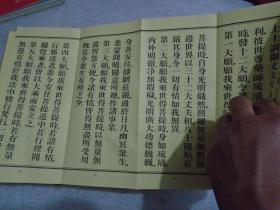 利。彼世尊藥師琉璃
時發十二大願令
第一大願願我來世得
菩提時自身光明熾然照曜無量無數無
邊世界以三十二大丈夫相八十隨形莊
嚴其身令一切有情如我無異
第二大願願我來世得菩提時身如琉璃
內外明徹淨無瑕穢光明廣大功德巍巍
身善安住燄網莊嚴過於日月幽冥衆生
悉蒙開曉隨意所趣作諸事業
第三大願願我來世得菩提時以無量無
邊智慧方便令諸有情皆得無盡所受用
物莫令衆生有所乏少
第四大願願我來世得菩提時若諸有情
行邪道者悉令安住菩提道中若行聲聞
獨覺乘者皆以大乘而安立之
第五大願願我來世得菩提時若有無量
無邊有情於我法中修行梵行一